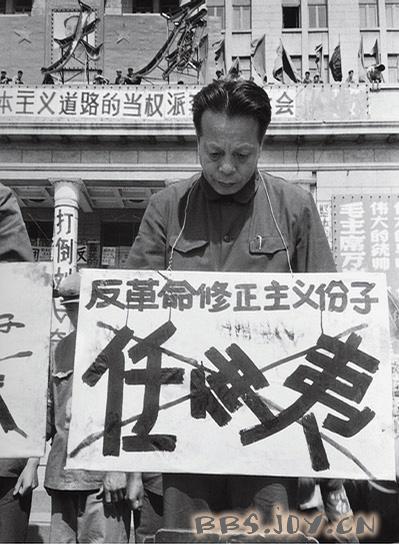 本主义道路的当权派
会
打倒
伟大的
毛主席万
反革命修正主义份子
任仲夷
BBS.JOY.CN